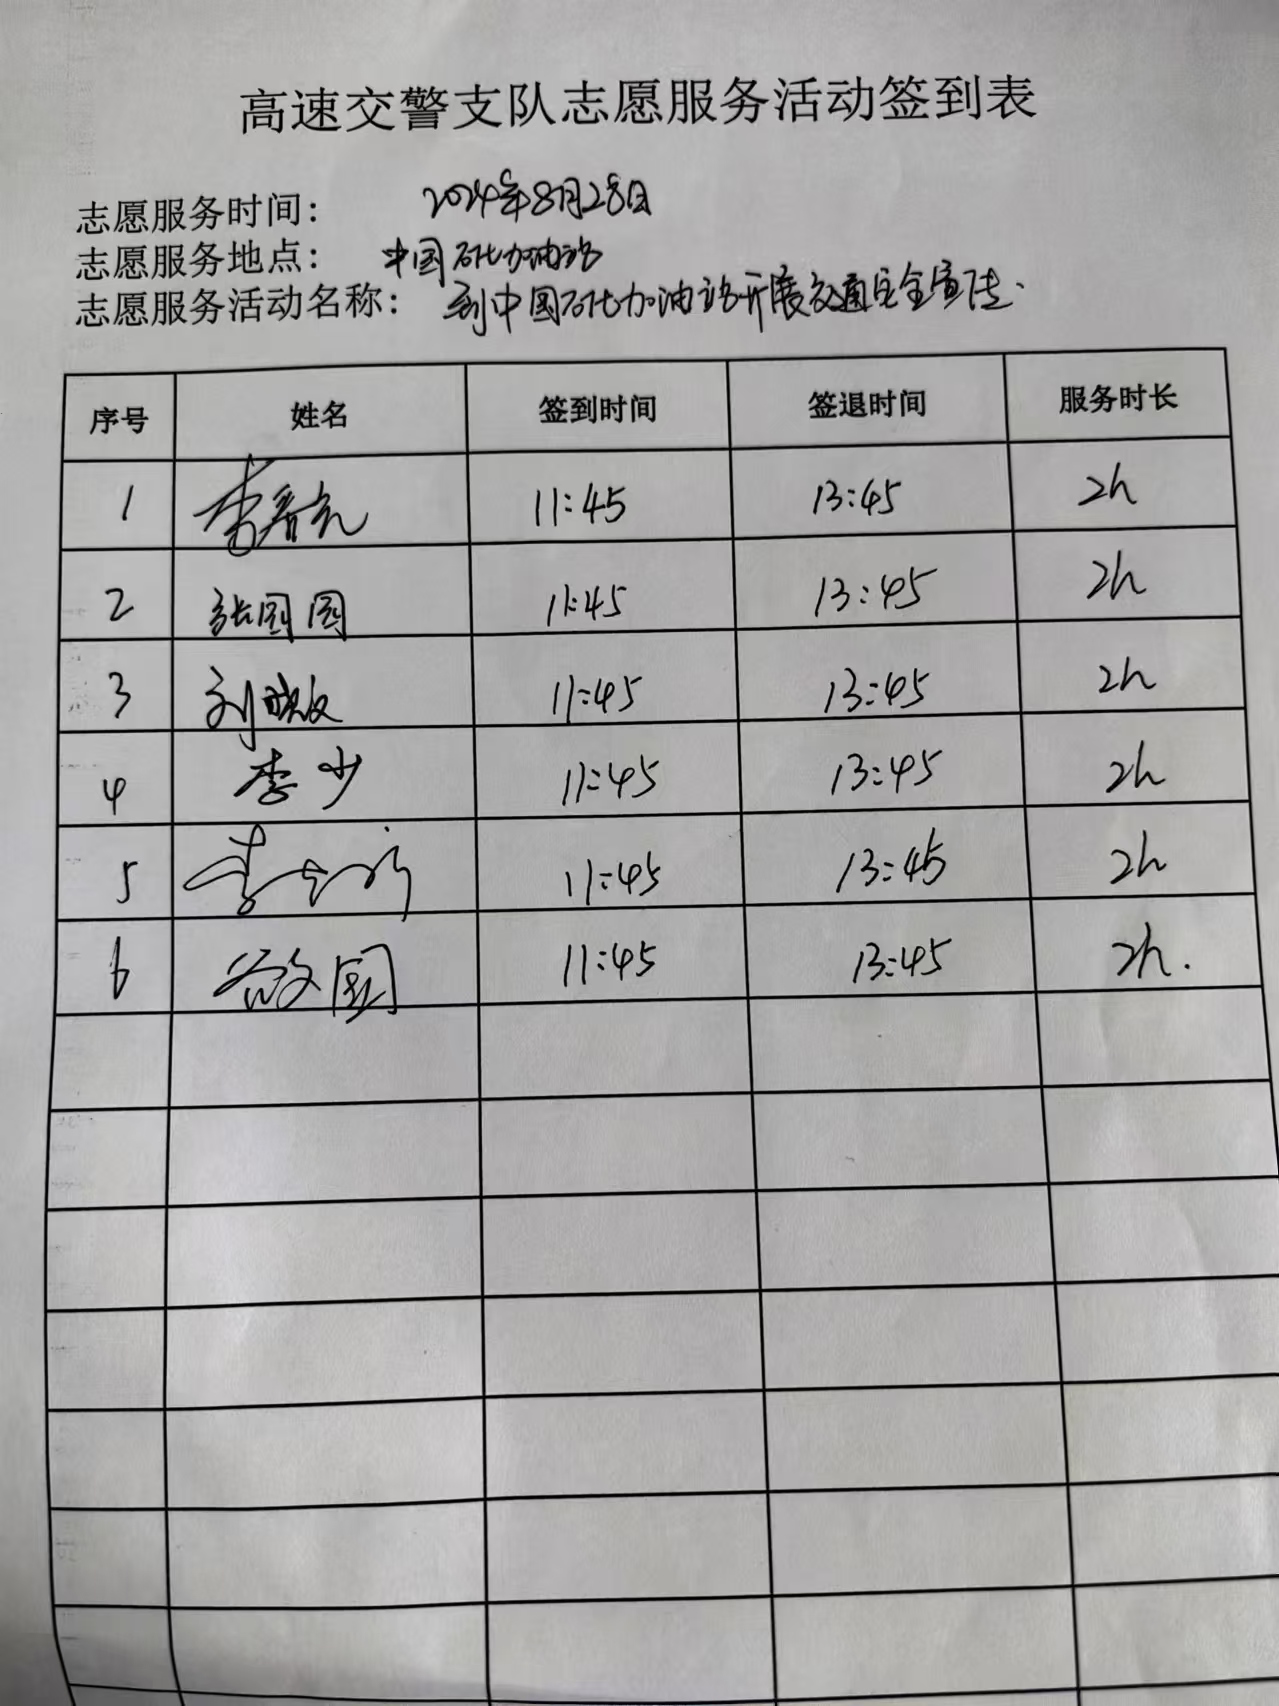 高速交警支队志愿服务活动签到表
志愿服务时间： 2024年8月28日
志愿服务地点： 中国石化加油站
志愿服务活动名称： 到中国石化加油站开展交通安全宣传.
序号 姓名 签到时间 签退时间 服务时长
1 李春元 11:45 13:45 2h
2 张园园 11:45 13:45 2h
3 刘晓敏 11:45 13:45 2h
4 李少 11:45 13:45 2h
5 李 11:45 13:45 2h
6 国 11:45 13:45 2h.